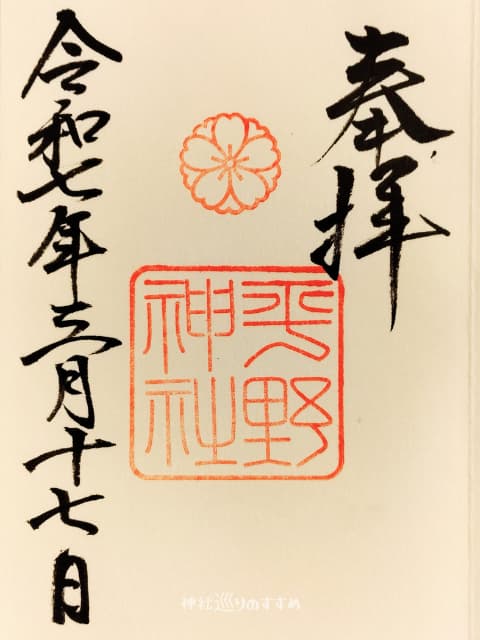 奉拝
平野
神社
令和七年三月十七日
神社巡りのすすめ